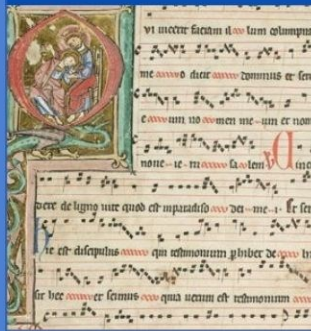 vi incerit faciam il lum columpna
me o dicit dominus et scri
e um no men me um et nom
noue ie ru sa lem V in
dere de ligno uite quod est inparadiso dei me i Et scri
hic est discipulus qui testimonium phibet de h
sit hec et scimus quia uerum est testimonium